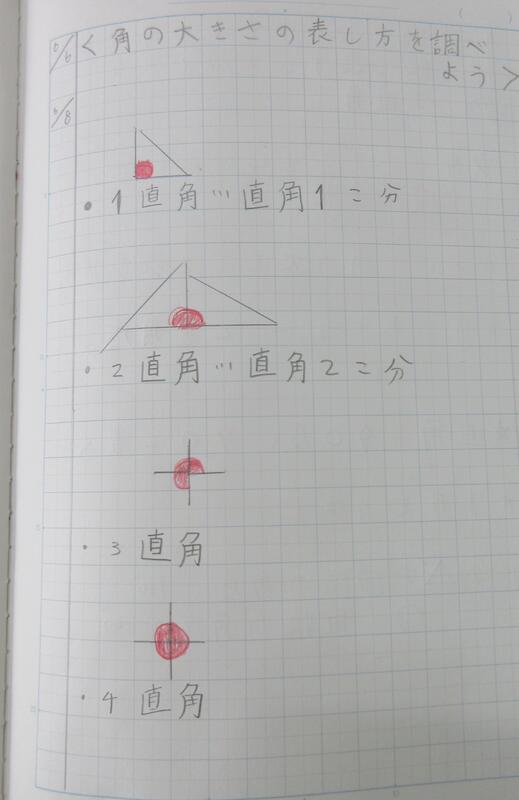 6/6 <角の大きさの表し方を調べ
よう>
6/8
・1直角…直角1こ分
・2直角…直角2こ分
・3直角
・4直角